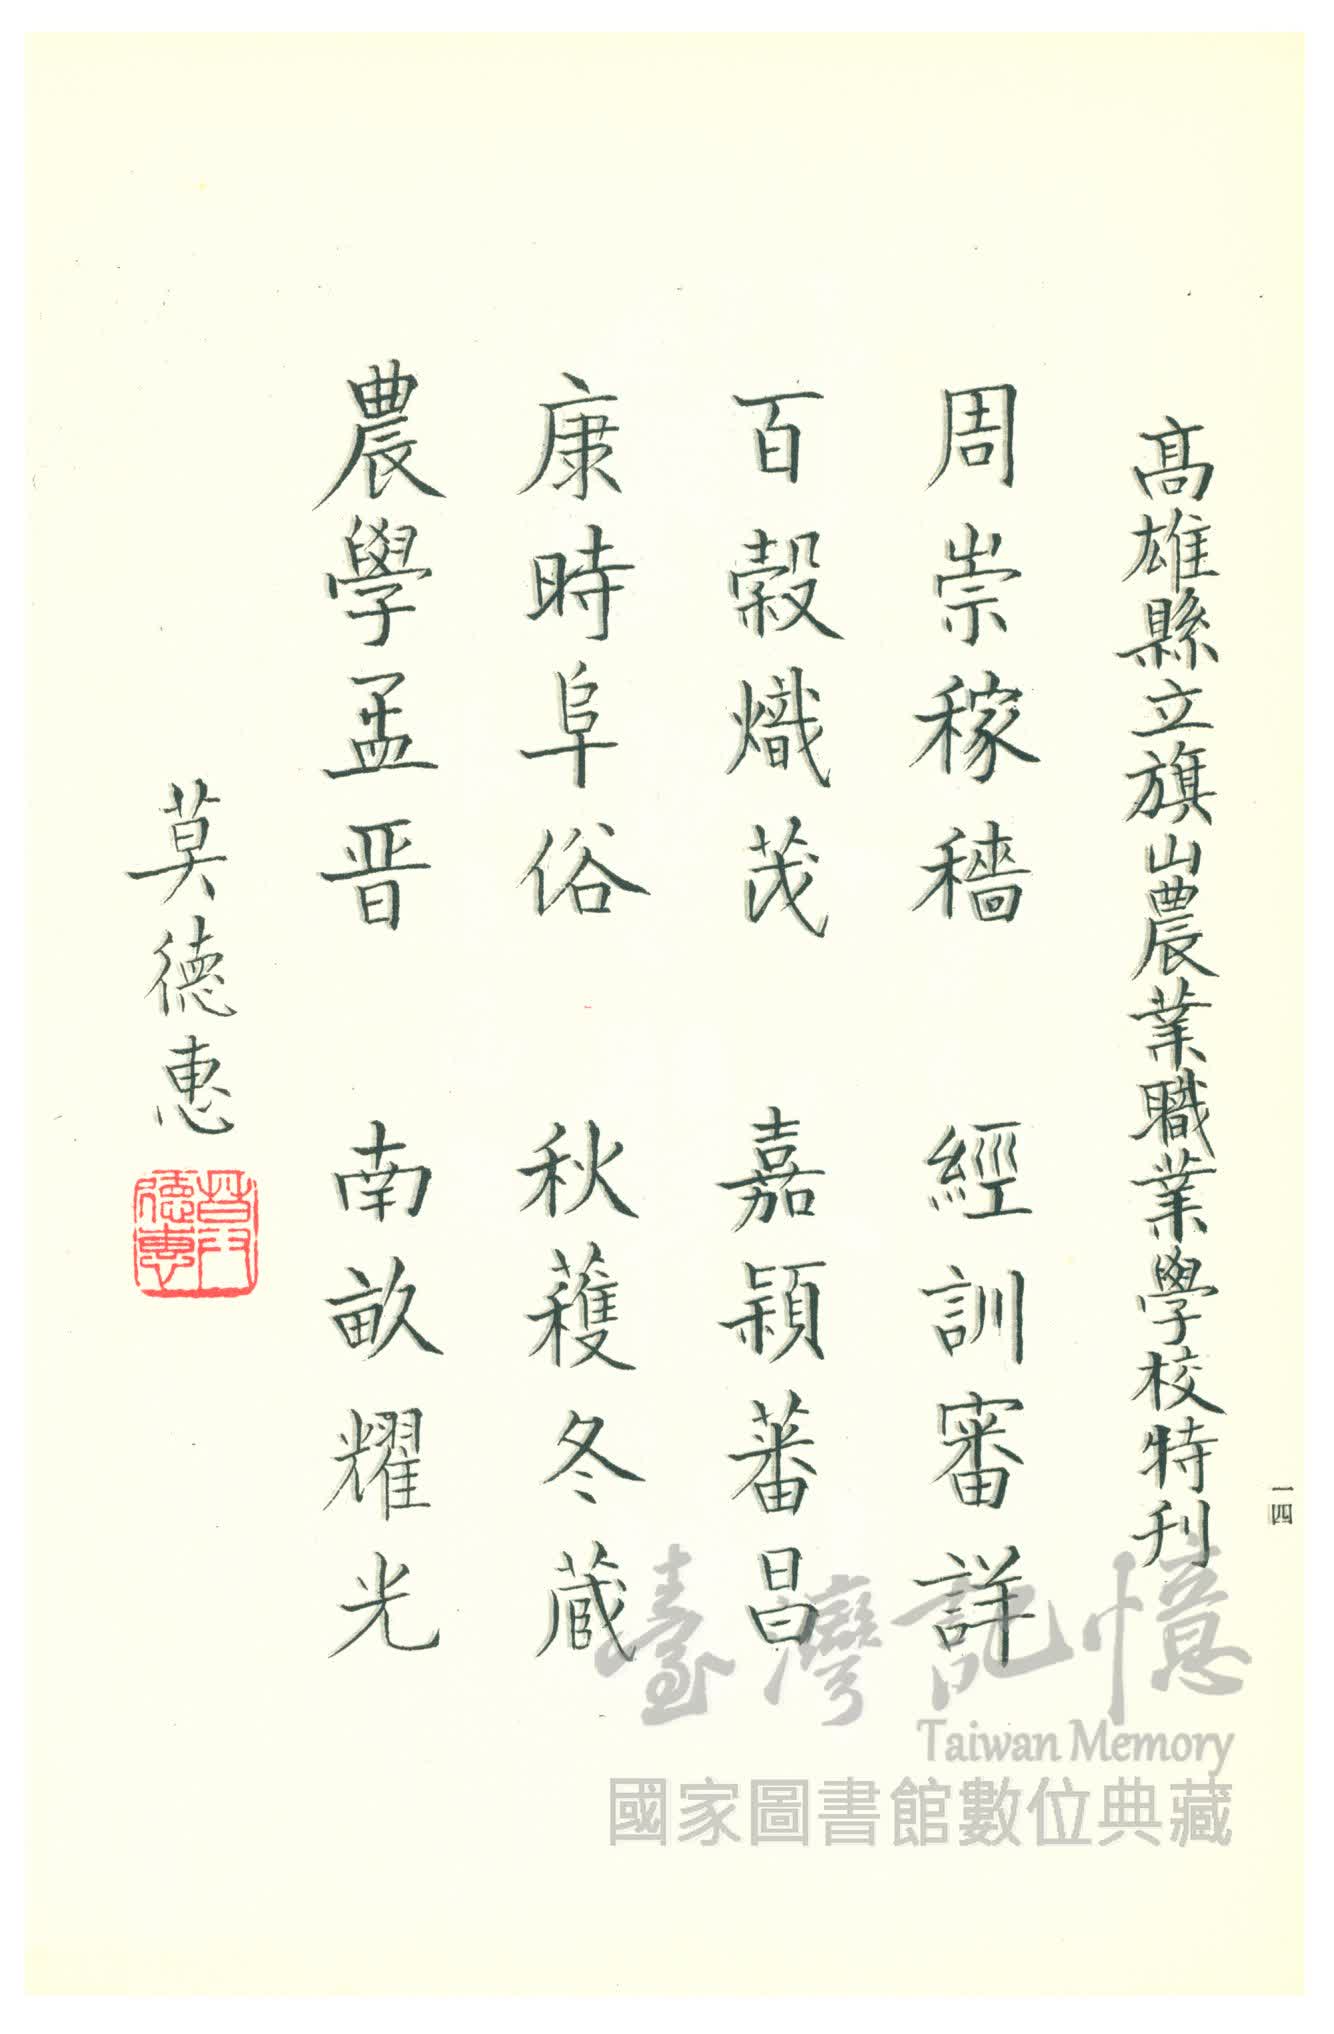 一四
高雄縣立旗山農業職業學校特刊
周崇稼穡　經訓審詳
百穀熾茂　嘉穎蕃昌
康時阜俗　秋穫冬蔵
農學孟晋　南畝耀光
莫德惠
莫德惠
臺灣記憶
Taiwan Memory
國家圖書館數位典藏